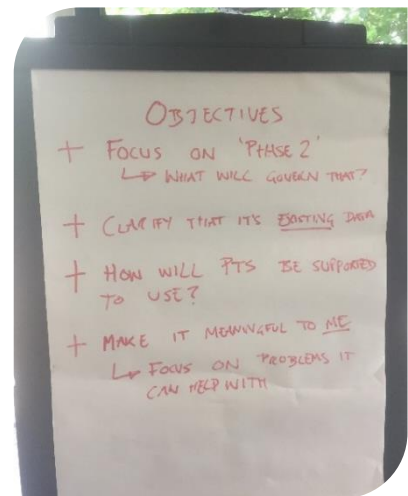 OBJECTIVES
+ FOCUS ON 'PHASE 2'
↳ WHAT WILL GOVERN THAT?
+ CLARIFY THAT IT'S EXISTING DATA
+ HOW WILL PTS BE SUPPORTED
TO USE?
+ MAKE IT MEANINGFUL TO ME
↳ FOCUS ON PROBLEMS IT
CAN HELP WITH